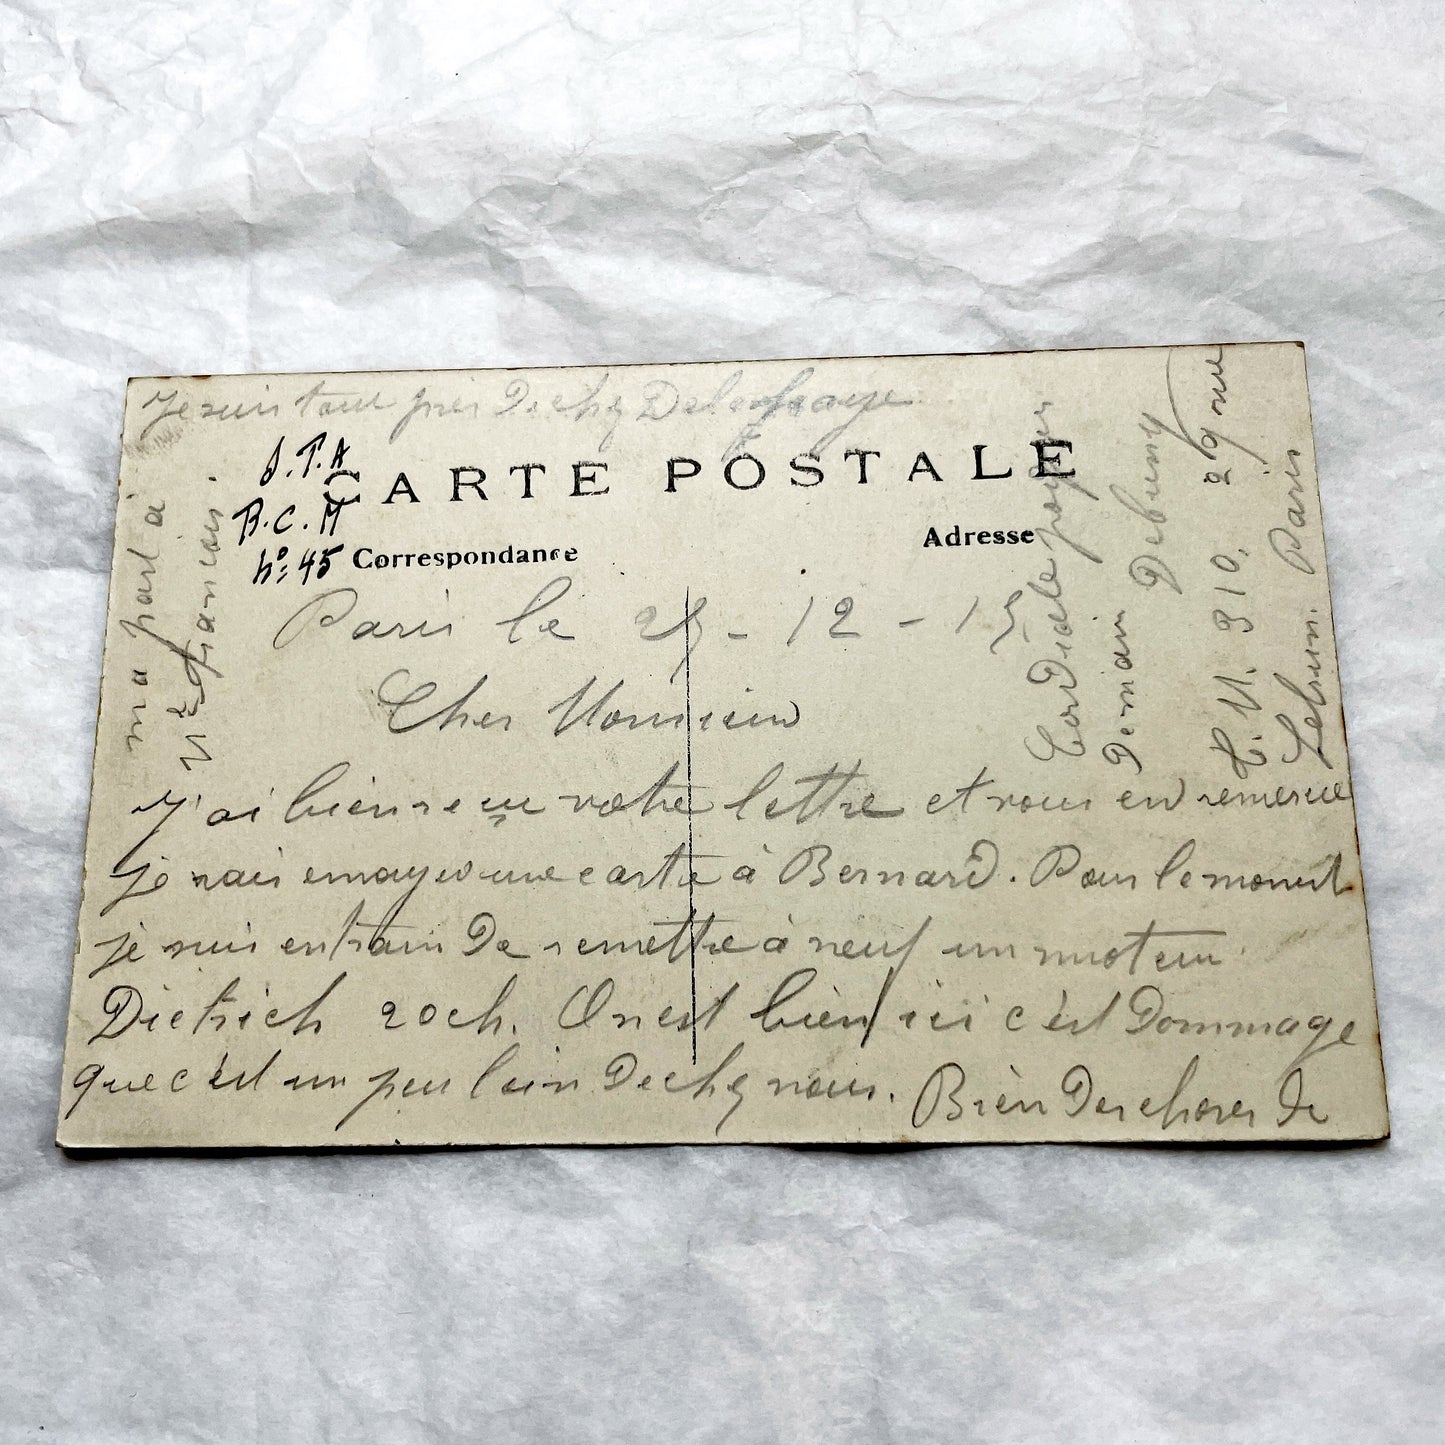 Je suis tout près de chez Delahaye
S.T.A
B.C.M
No: 45
CARTE POSTALE
Correspondance
Adresse
Paris le 25 - 12 - 15
Cher Monsieur
J'ai bien reçu votre lettre et vous en remercie
je vais envoyer une carte à Bernard. Pour le moment
je suis entrain de remettre à neuf un moteur
Dietrich 20 ch. On est bien ici c'est dommage
que c'est un peu loin de chez nous. Bien des choses de
ma part à
François.
Cordiale
Debuny
29 rue
310.
Paris